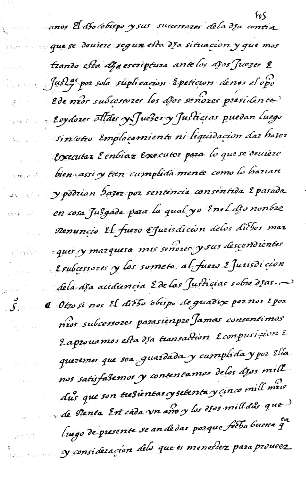 anos El dho obispo y sus subcesores de la dha contia
que se deviere segun esta dha situacion y que mos
trando esta dha escriptura ante los dhos Juezes E
por sola suplicacion E peticion de nos el obpo
E de nros subcesores los dhos señores presidente
E oydores alldes y Juezes y Justicias puedan luego
sin otro Emplaçamiento ni liquidacion dar hazer
executar E enbiar executor para lo que se deviere
bien asi y tan cumplida mente como lo harian
y podrian hazer por sentencia consentida E pasada
en cosa Juzgada para lo qual yo En el dho nonbre
Renuncio El fuero E Jurisdicion de los dichos mar
ques y marquesa mis señores y sus descendientes
E subcesores y los someto al fuero E Jurisdicion
de la dha audiencia E de las Justicias sobre dhas
Otro si nos El dicho obispo de guadix por nos E por
nros subcesores para sienpre Jamas consentimos
E aprovamos esta dha transaction E conpusicion E
queremos que sea guardada y cumplida y por Ella
nos satisfazemos y contentamos de los dhos mill
que son trezientas y setenta y cinco mill mrs
de Renta En cada un año y los dhos mill dus que
luego de presente se an de dar porque fecha buena qta
y consideracion de lo que es menester para proveer